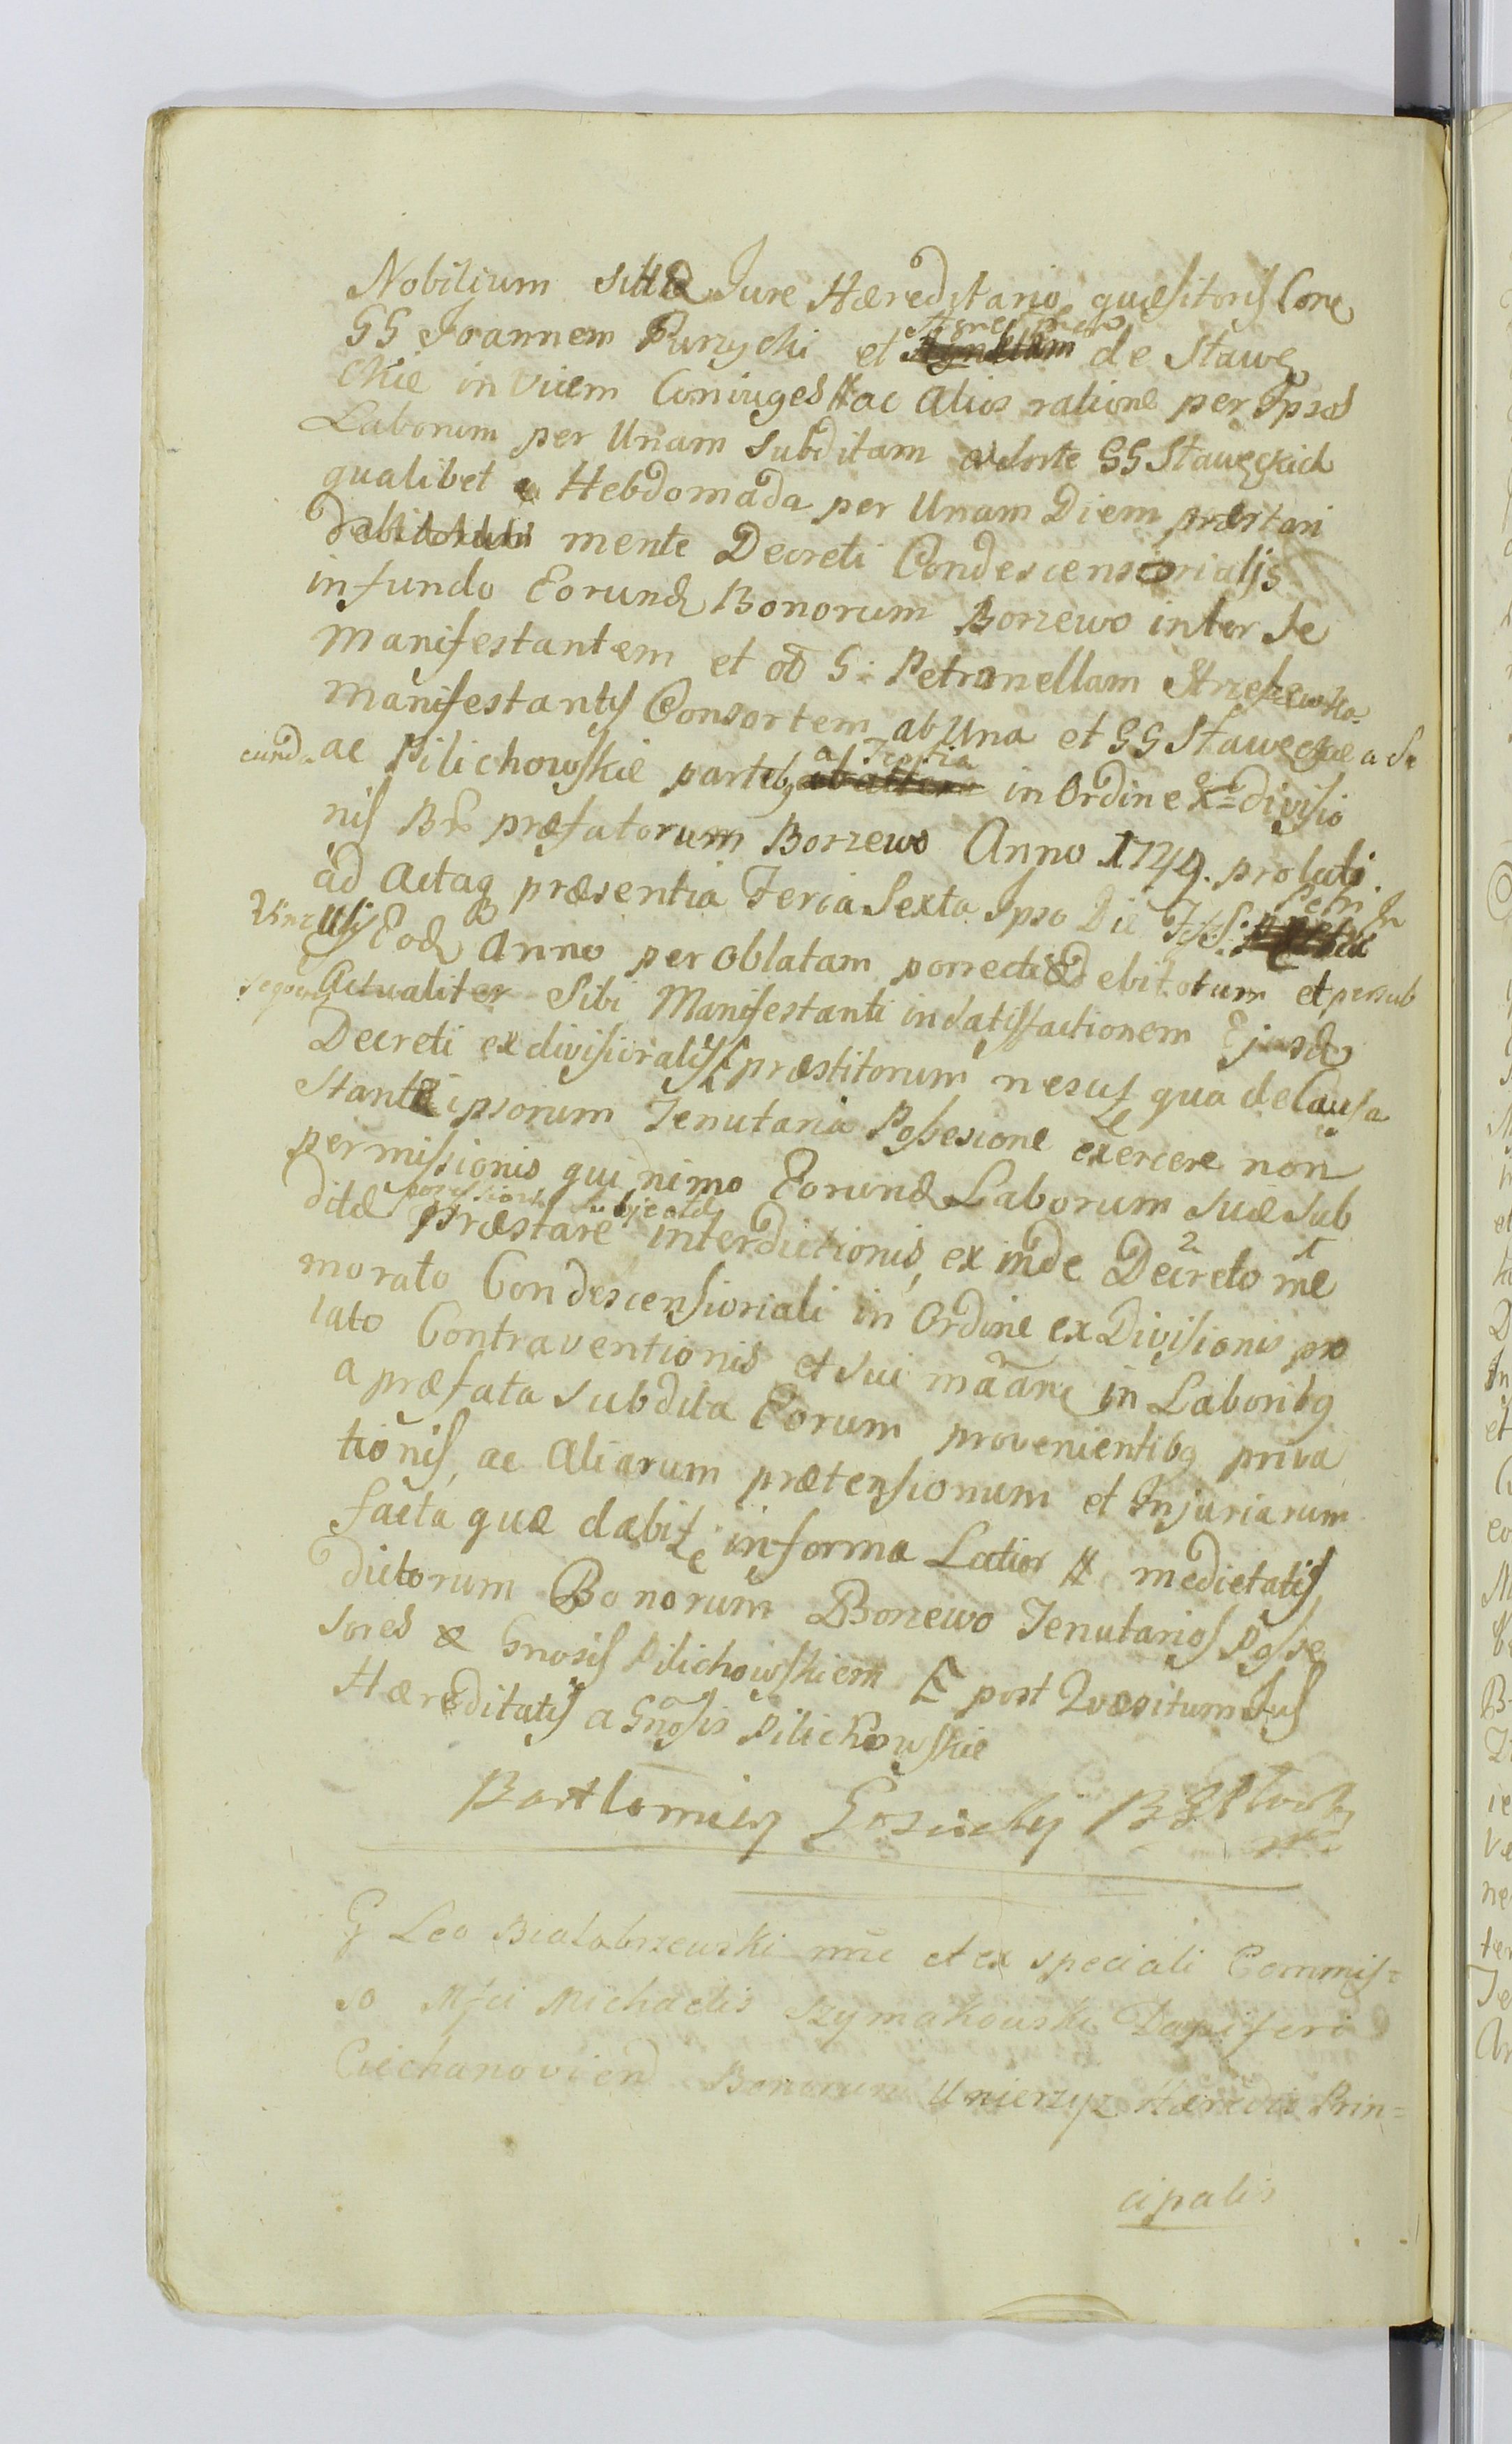 Nobilium sitta Jure Hæreditario quæsitoris Cora
GG Joannem Purzycki et Agnetem de Stawę
ckie invicem Coniuges ac Alios ratione per Ipsos
Laborum per Unam Subditam a dorte GG Staweckich
qualibet Hebdomada per Unam Diem præstari
debitorum mente Decreti Condescensorialis
in fundo Eorund Bonorum Borzewo inter Se
Manifestantem et ol G: Petronellam Strzeszewska
Manifestantis Consortem ab Una et GG Staweckie a Se
cund. ac Pilichowskie partibq a Tertia in Ordine Ex=divisio
nis Br præfatorum Borzewo Anno 1749. prolati
ad Actaq præsentia Feria Sexta Ipso Die F: S: Petri In
Vinculis Eod Anno per Oblatam porrecti debitorum et per sub
Actualiter Sibi Manifestanti in Satisfactionem Ejusd
Decreti exdivisioralis præstitorum nesus qua de Causa
Stante ipsorum Tenutaria Possesione exercere non
permissionis qui nimo Eorund Laborum Suæ Sub
ditæ possessioni subjectæ
præstare interdictionis, ex inde Decreto 2 me 1
morato Condescensioriali in Ordine ex Divisionis pro
lato Contraventionis et Sui in Laboribq
a præfata Subdita Eorum provenientibq priva
tionis, ac Aliarum prætensionum et Injuriarum
facta quæ dabit informa Latior medietatis
dictorum Bonorum Borzewo Tenutarios Posse
sores Gnosis Pilichowskiem post Quæsitum Jus
Hæreditatis a Gnosis Pilichowskie
Bartlomiey Gosicky
G Leo Bialobrzewski nne et ex speciali Commis=
so Mfci Michaelis Szymakowski Dapiferi
Ciechanoviens Bonorum Unierzyz Hæredis Prin=
cipalis